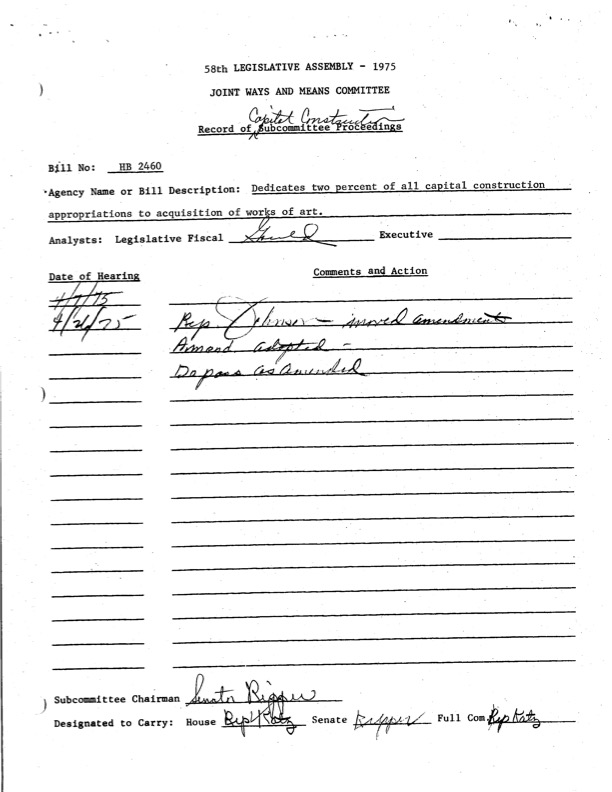 58th LEGISLATIVE ASSEMBLY - 1975
JOINT WAYS AND MEANS COMMITTEE
Capitol Construction
Record of Subcommittee Proceedings
Bill No: HB 2460
Agency Name or Bill Description: Dedicates two percent of all capital construction
appropriations to acquisition of works of art.
Analysts: Legislative Fiscal Executive
Date of Hearing Comments and Action
4/7/75
4/21/75 Rep. Johnson - moved amendments
Amend adopted -
Do pass as amended
Subcommittee Chairman Senator Ripper
Designated to Carry: House Rep Katz Senate Ripper Full Com. Rep Katz